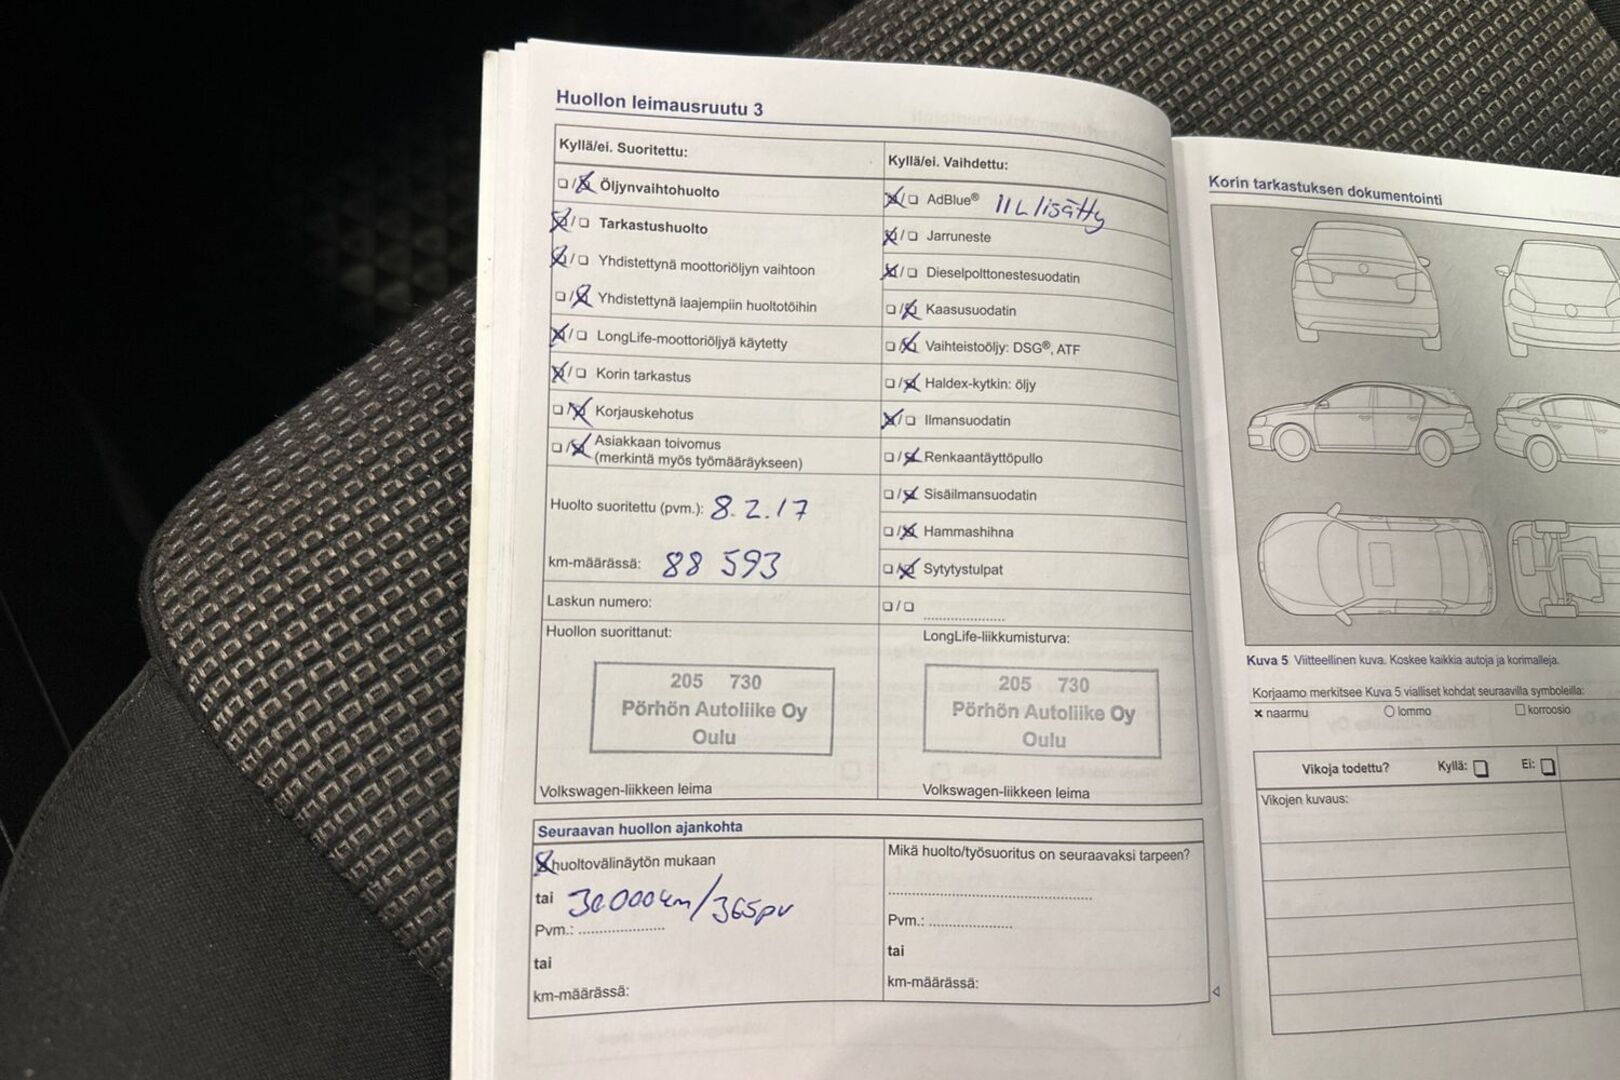 Huollon leimausruutu 3
Kyllä/ei. Suoritettu:
Öljynvaihtohuolto
Tarkastushuolto
Yhdistettynä moottoriöljyn vaihtoon
Yhdistettynä laajempiin huoltotöihin
LongLife-moottoriöljyä käytetty
Korin tarkastus
Korjauskehotus
Asiakkaan toivomus
(merkintä myös työmääräykseen)
Huolto suoritettu (pvm.): 8.2.17
km-määrässä: 88 593
Laskun numero:
Huollon suorittanut:
205 730
Pörhön Autoliike Oy
Oulu
Volkswagen-liikkeen leima
Kyllä/ei. Vaihdettu:
AdBlue® 11L lisätty
Jarruneste
Dieselpolttonestesuodatin
Kaasusuodatin
Vaihteistoöljy: DSG®, ATF
Haldex-kytkin: öljy
Ilmansuodatin
Renkaantäyttöpullo
Sisäilmansuodatin
Hammashihna
Sytytystulpat
LongLife-liikkumisturva:
205 730
Pörhön Autoliike Oy
Oulu
Volkswagen-liikkeen leima
Seuraavan huollon ajankohta
huoltovälinäytön mukaan
tai 30000km/365pv
Pvm.:
tai
km-määrässä:
Mikä huolto/työsuoritus on seuraavaksi tarpeen?
Pvm.:
tai
km-määrässä:
Korin tarkastuksen dokumentointi
Kuva 5 Viitteellinen kuva. Koskee kaikkia autoja ja korimalleja.
Korjaamo merkitsee Kuva 5 vialliset kohdat seuraavilla symboleilla:
x naarmu lommo korroosio
Vikoja todettu? Kyllä: Ei:
Vikojen kuvaus: